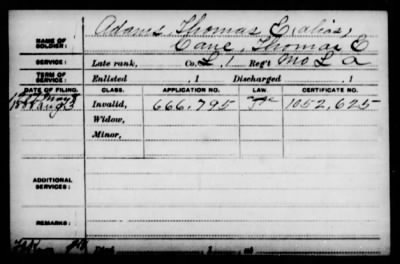 Adams, Thomas E (alias)
NAME OF SOLDIER: Cane, Thomas E
SERVICE: Late rank, Co. L, 1 Reg't Mo L a
TERM OF SERVICE: Enlisted , 1 Discharged , 1
DATE OF FILING. CLASS. APPLICATION NO. LAW. CERTIFICATE NO.
Invalid, 666,795 1052,625
Widow,
Minor,
ADDITIONAL SERVICES:
REMARKS: